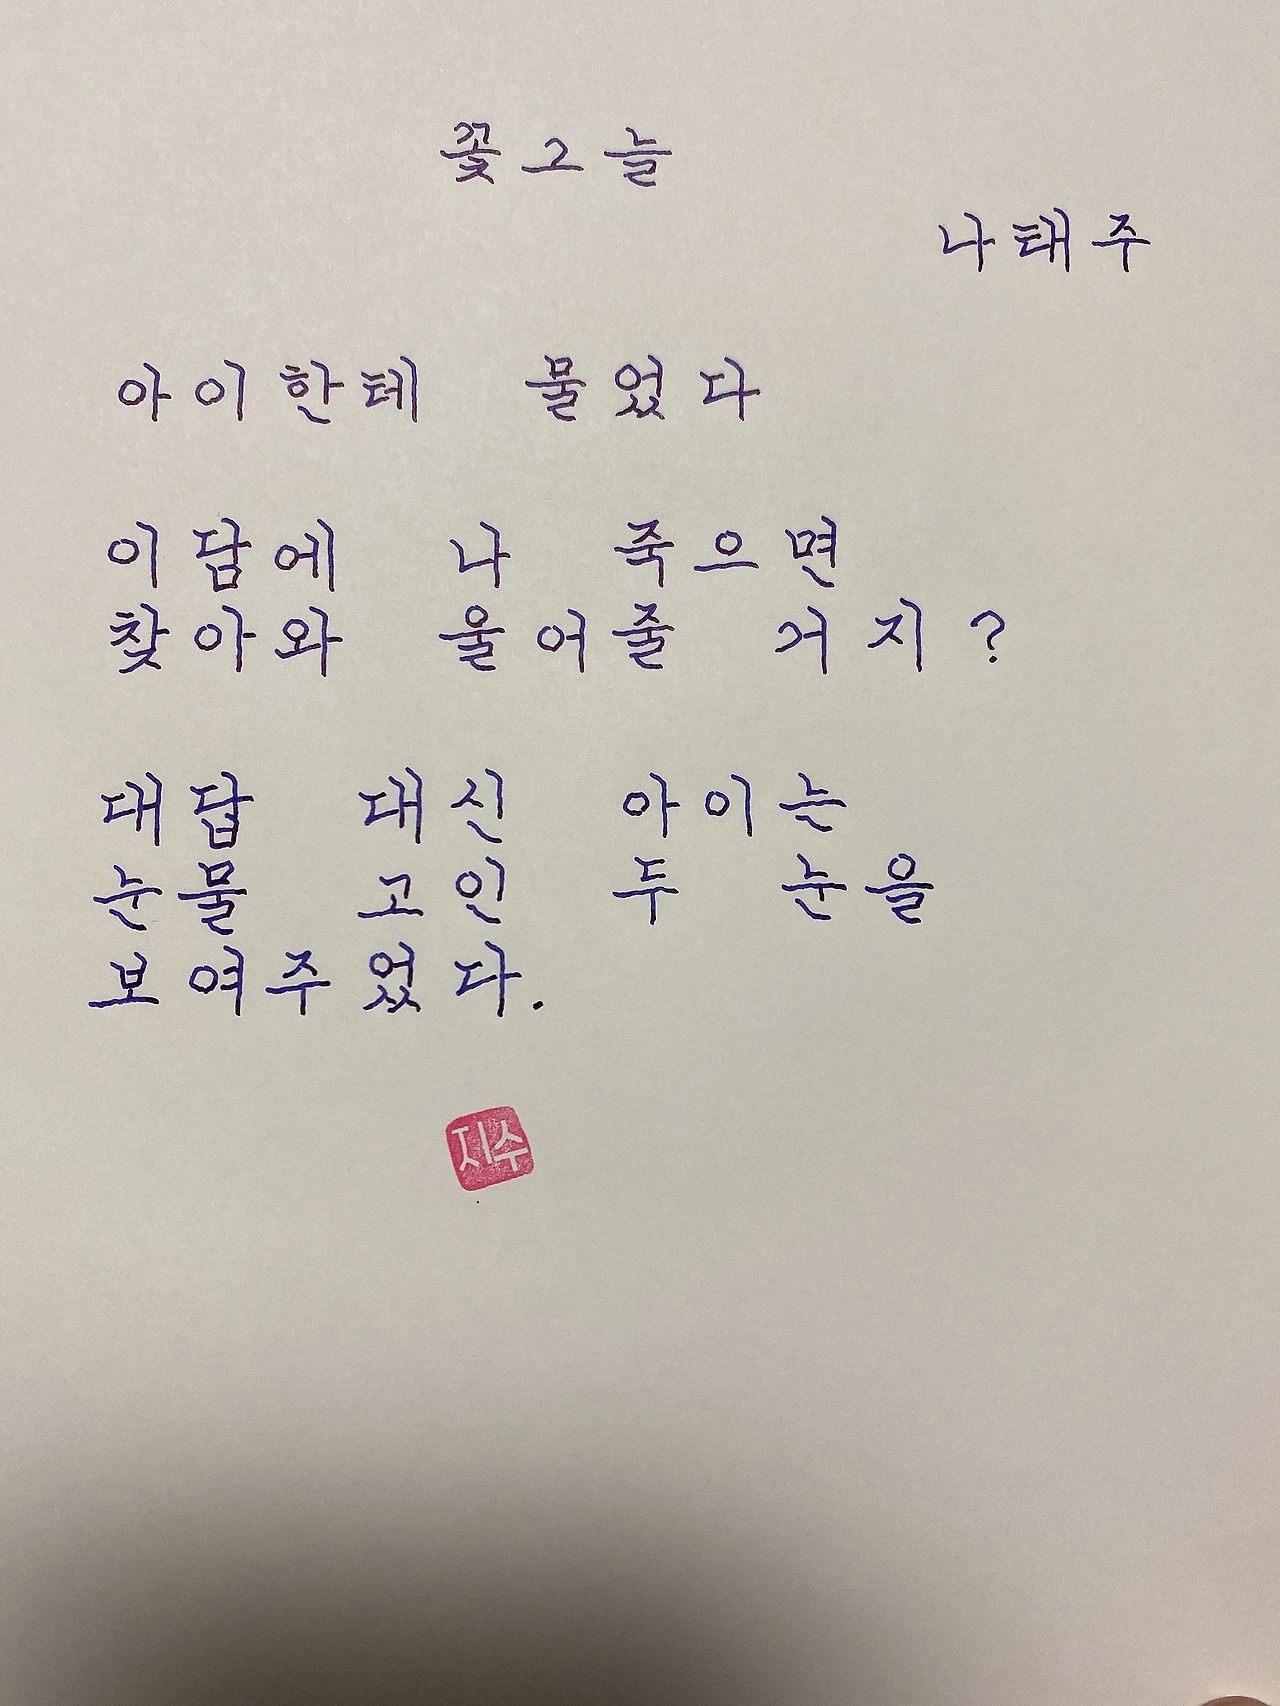 꽃그늘
나태주
아이한테 물었다
이담에 나 죽으면
찾아와 울어줄 거지?
대답 대신 아이는
눈물 고인 두 눈을
보여주었다.
지수